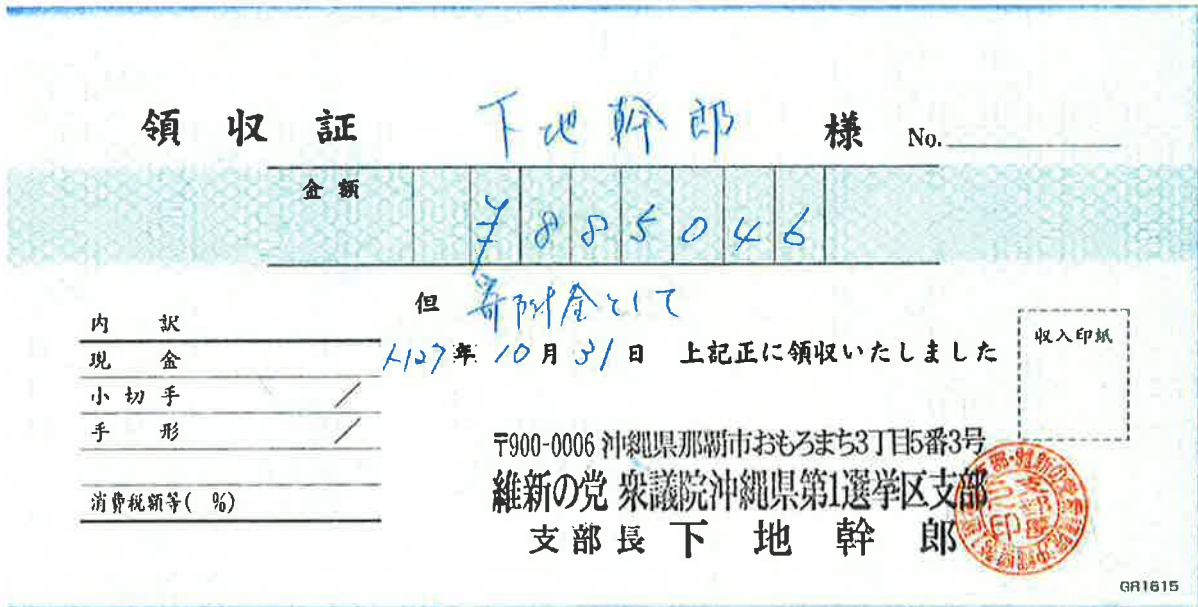 領収証 下地幹郎 様 No.
金額 ¥885046
但 寄附金として
H27年10月31日 上記正に領収いたしました
内訳
現金
小切手 /
手形 /
消費税額等( %)
収入印紙
〒900-0006 沖縄県那覇市おもろまち3丁目5番3号
維新の党 衆議院沖縄県第1選挙区支部
支部長 下地幹郎
GR1615